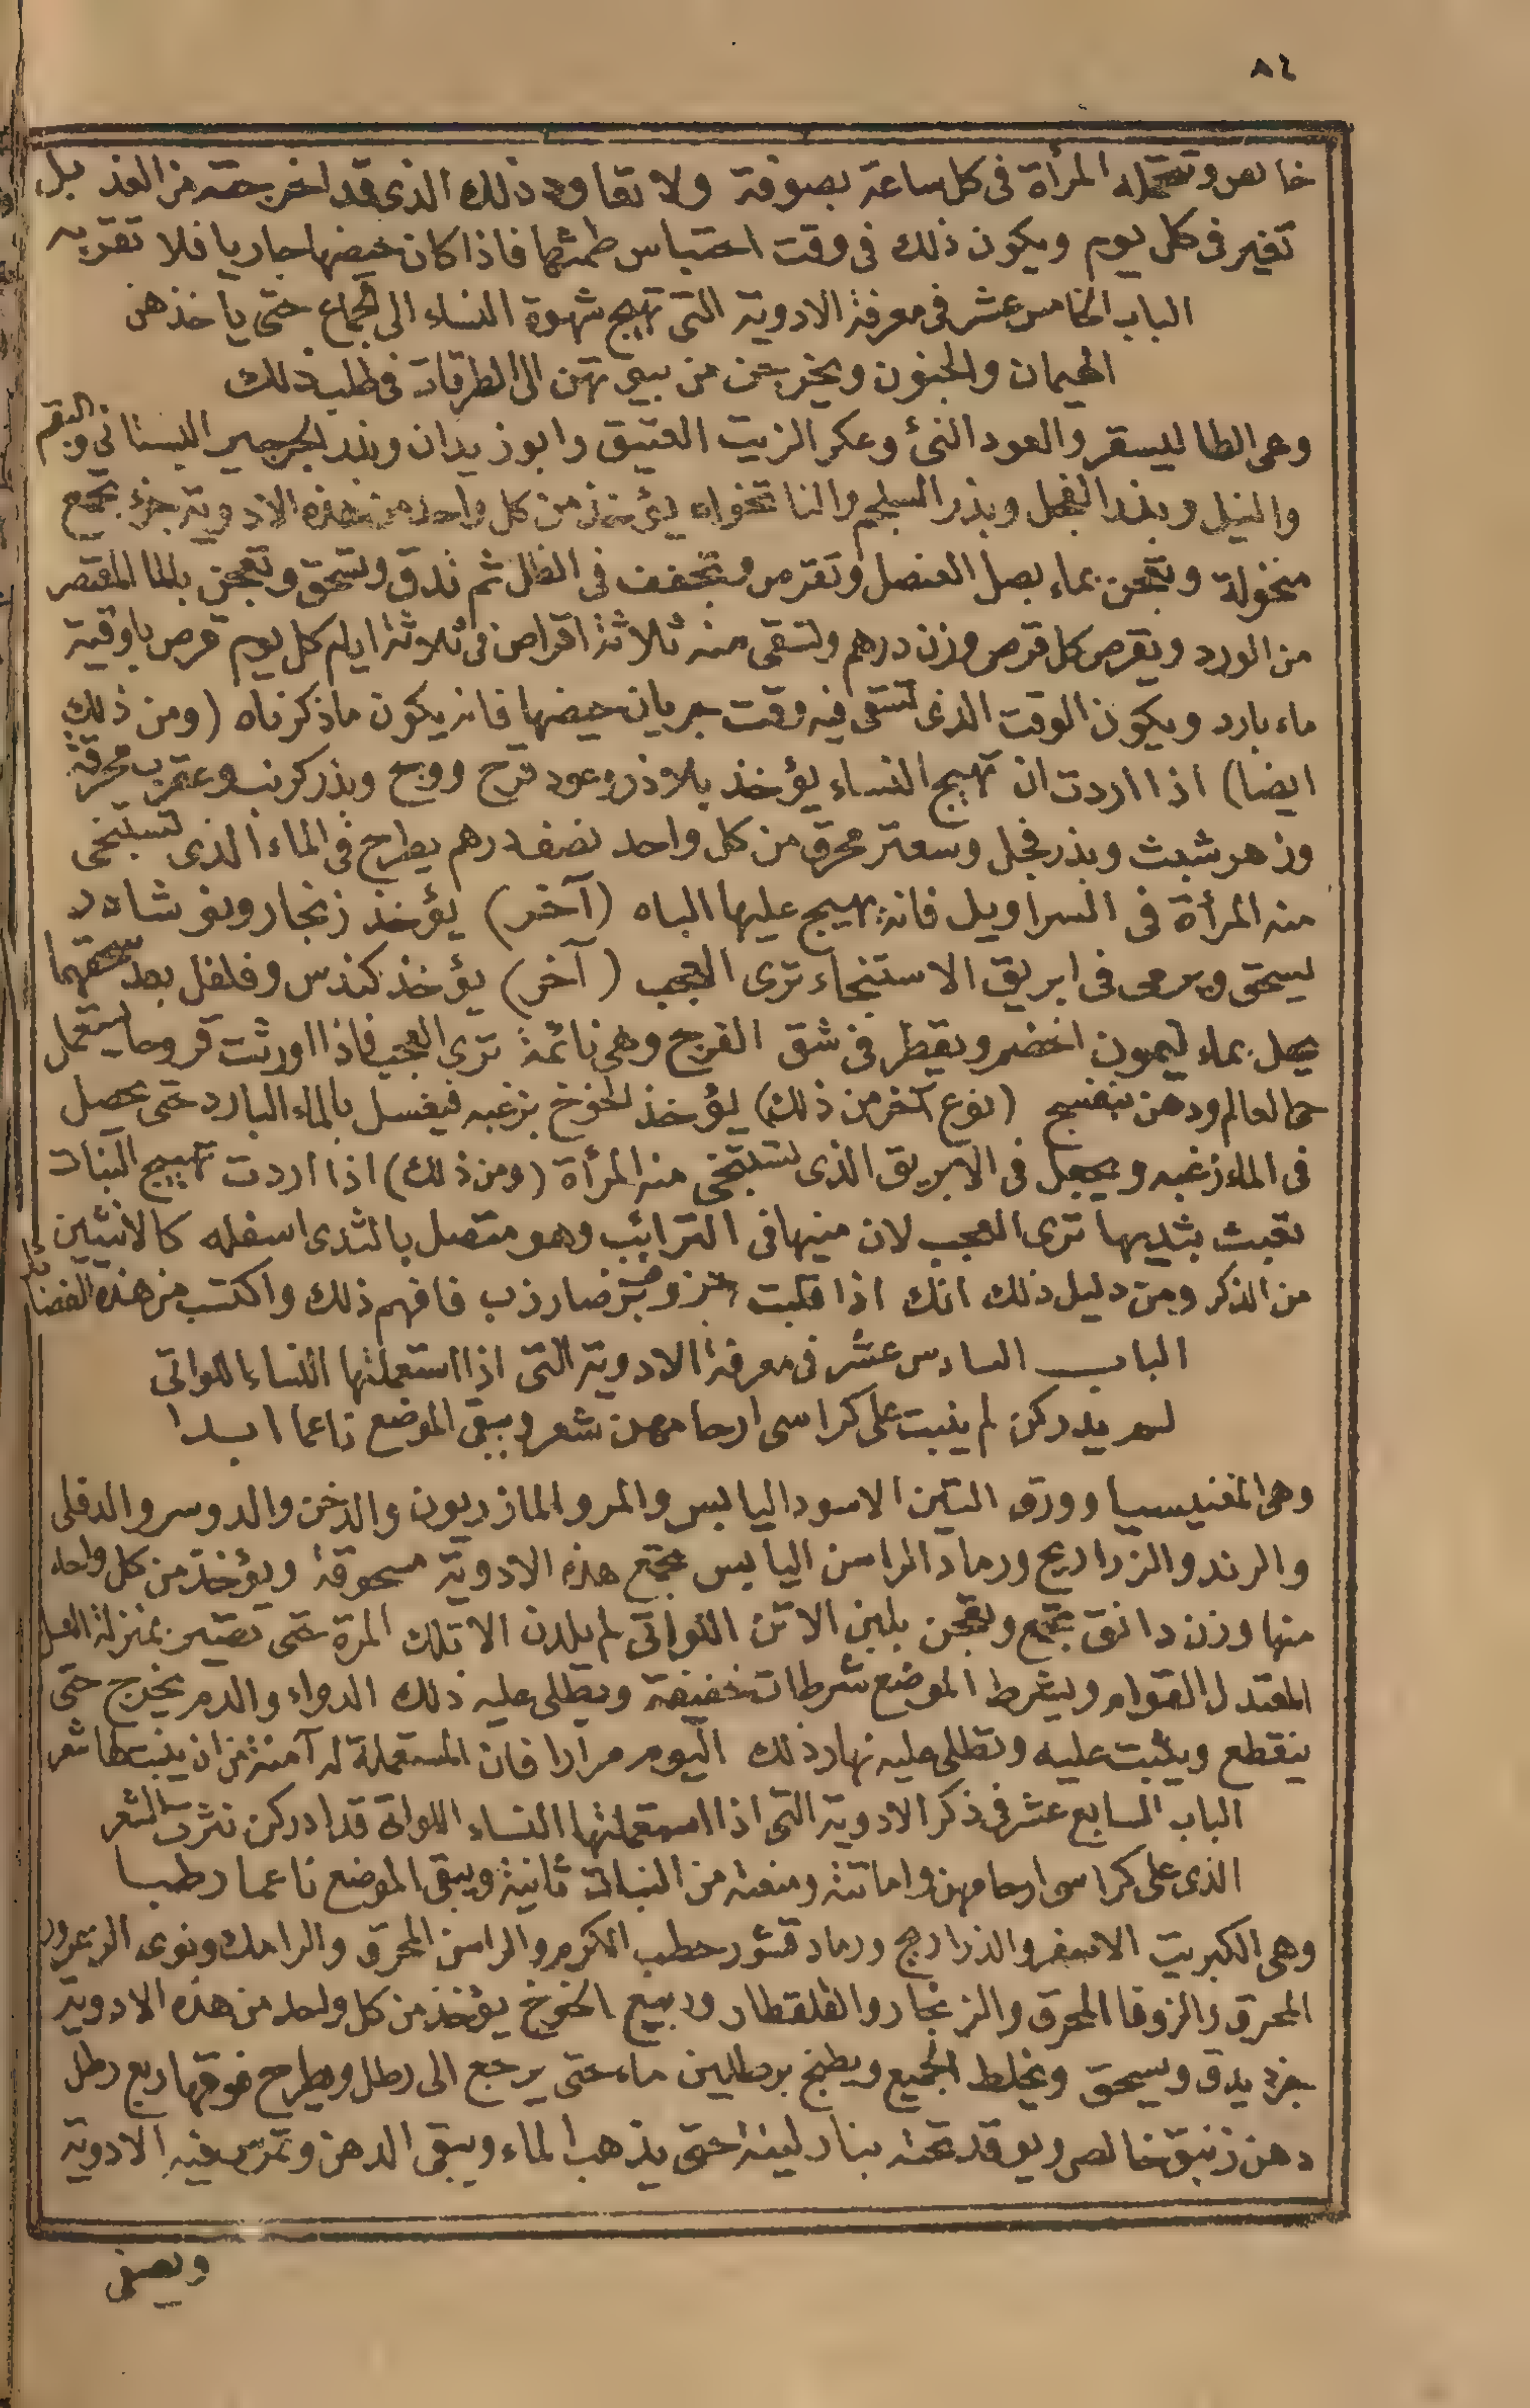 ٨٤
خالص وتتحمله المرأة فى كل ساعة بصوفة ولا تعاود ذلك الذى قد اخرجته من الغد بل
تغير فى كل يوم ويكون ذلك فى وقت احتباس طمثها فاذا كان حيضها جاريا فلا تقربه
الباب الخامس عشر فى معرفة الادوية التى تهيج شهوة النساء الى الجماع حتى ياخذهن
الهيمان والجنون ويخرجن من بيوتهن الى الطرقات فى طلب ذلك
وهى الطاليسفر والعود النئ وعكر الزيت العتيق وابوزيدان وبذر الجرجير البستانى والبقم
والنيل وبذر الفجل وبذر السلجم والنانخواه يؤخذ من كل واحد من هذه الادوية جزء تجمع
منخولة وتعجن بماء بصل العنصل وتقرص وتجفف فى الظل ثم تدق وتسحق وتعجن بالماء المعتصر
من الورد ويقرص كل قرص وزن درهم وتسقى منه ثلاثة اقراص فى ثلاثة ايام كل يوم قرص باوقية
ماء بارد ويكون الوقت الذى تسقى فيه وقت جريان حيضها فانه يكون ماذكرناه (ومن ذلك
ايضا) اذا اردت ان تهيج النساء يؤخذ بلاذر وعود قرح ووج وبذر كرنب وعقرب محرقة
وزهر شبث وبذر فجل وسعتر محرق من كل واحد نصف درهم يطرح فى الماء الذى تستنجى
منه المرأة فى السراويل فانه يهيج عليها الباه (آخر) يؤخذ زنجار ونوشادر
يسحق ويرمى فى ابريق الاستنجاء ترى العجب (آخر) يؤخذ كندس وفلفل بعد سحقهما
يحل بماء ليمون اخضر ويقطر فى شق الفرج وهى نائمة ترى العجب فاذا اورثت قروحا يستعمل
حى العالم ودهن بنفسج (نوع آخر من ذلك) يؤخذ الخوخ بزغبه فيغسل بالماء البارد حتى يحصل
فى الماء زغبه ويجعل فى الابريق الذى تستنجى منه المرأة (ومن ذلك) اذا اردت تهييج البنات
تعبث بثديها ترى العجب لان منيها فى الترائب وهو متصل بالثدى اسفله كالانثيين
من الذكر ومن دليل ذلك انك اذا صار ذب فافهم ذلك واكتسب من هذه الفضائل
الباب السادس عشر فى معرفة الادوية التى اذا استعملتها النساء اللواتى
لم يدركن لم ينبت على كراسى ارحامهن شعر ويبقى الموضع ناعما ابدا
وهى المغنيسيا وورق التين الاسود اليابس والمر والمازريون والدخن والدوسر والدفلى
والرند والزراريح ورماد الراسن اليابس تجمع هذه الادوية مسحوقة ويؤخذ من كل واحد
منها وزن دانق تجمع وتعجن بلبن الاتن اللواتى لم يلدن الا تلك المرة حتى تصير بمنزلة العسل
المعتدل القوام ويشرط الموضع شرطات خفيفة ويطلى عليه ذلك الدواء والدم يخرج حتى
ينقطع ويثبت عليه وتطلى عليه نهار ذلك اليوم مرارا فان المستعملة له آمنة من ان ينبت لها شعر
الباب السابع عشر فى ذكر الادوية التى اذا استعملتها النساء اللواتى قد ادركن نثرت الشعر
الذى على كراسى ارحامهن واماتته ومنعته من النبات ثانية ويبقى الموضع ناعما رطبا
وهى الكبريت الاصفر والذراريح ورماد قشور حطب الكرم والراسن المحرق والرامك ونوى الزعرور
المحرق والزوفا المحرق والزنجار والقلقطار وربيع الخوخ يؤخذ من كل واحد من هذه الادوية
جزء يدق ويسحق ويخلط الجميع ويطبخ برطلين ماء حتى يرجع الى رطل ويطرح فوقها ربع رطل
دهن زنبق خالص ويوقد تحته بنار لينة حتى يذهب الماء ويبقى الدهن وتمرس فيه الادوية
ويصفى